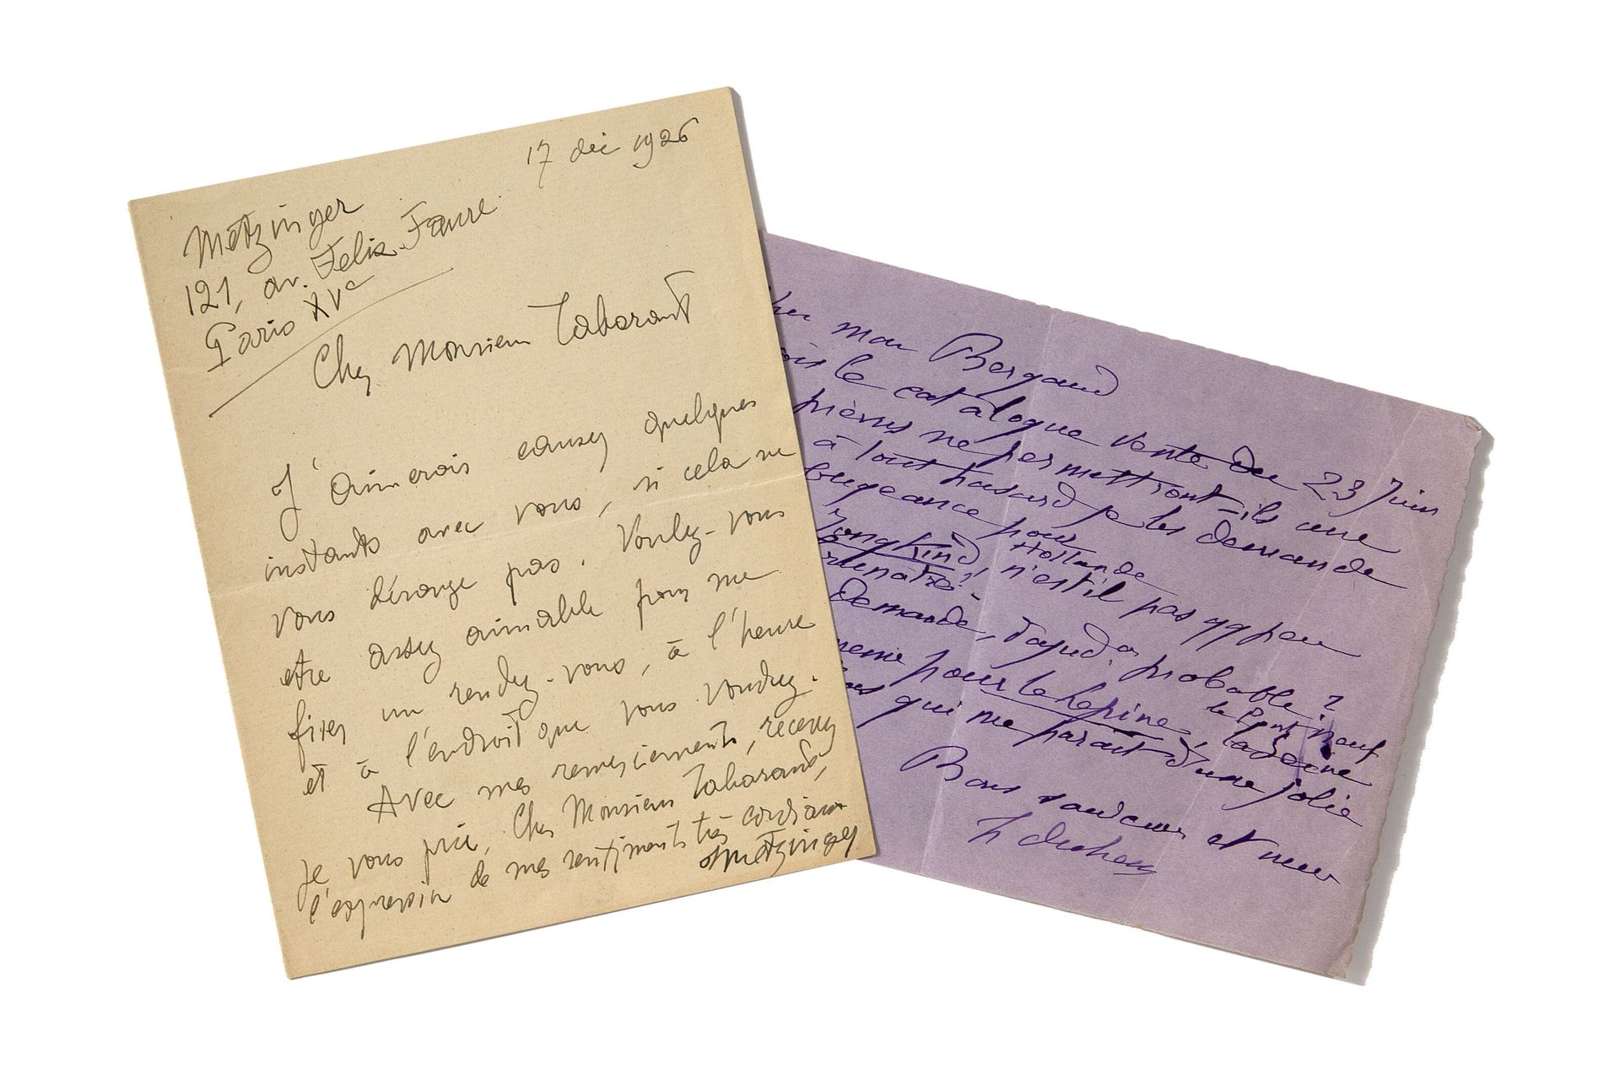 17 déc 1926
Metzinger
121, av. Felix-Faure
Paris XVe
Cher Monsieur Tabarant
J'aimerais causer quelques
instants avec vous, si cela ne
vous dérange pas. Voulez-vous
etre assez aimable pour me
fixer un rendez-vous, à l'heure
et à l'endroit que vous voudrez.
Avec mes remerciements, recevez
je vous prie, Cher Monsieur Tabarant,
l'expression de mes sentiments très cordiaux
Metzinger
mon Bergaud
le catalogue vente du 23 Juin
pièvres ne permettront-ils une
à tout hasard je les demande
pour Hollande
Jongkind, n'est il pas qq peu
Demande, d'ajud. probable?
pour le Lepine, la Seine
le Pont neuf
qui me parait d'une jolie
Bons et